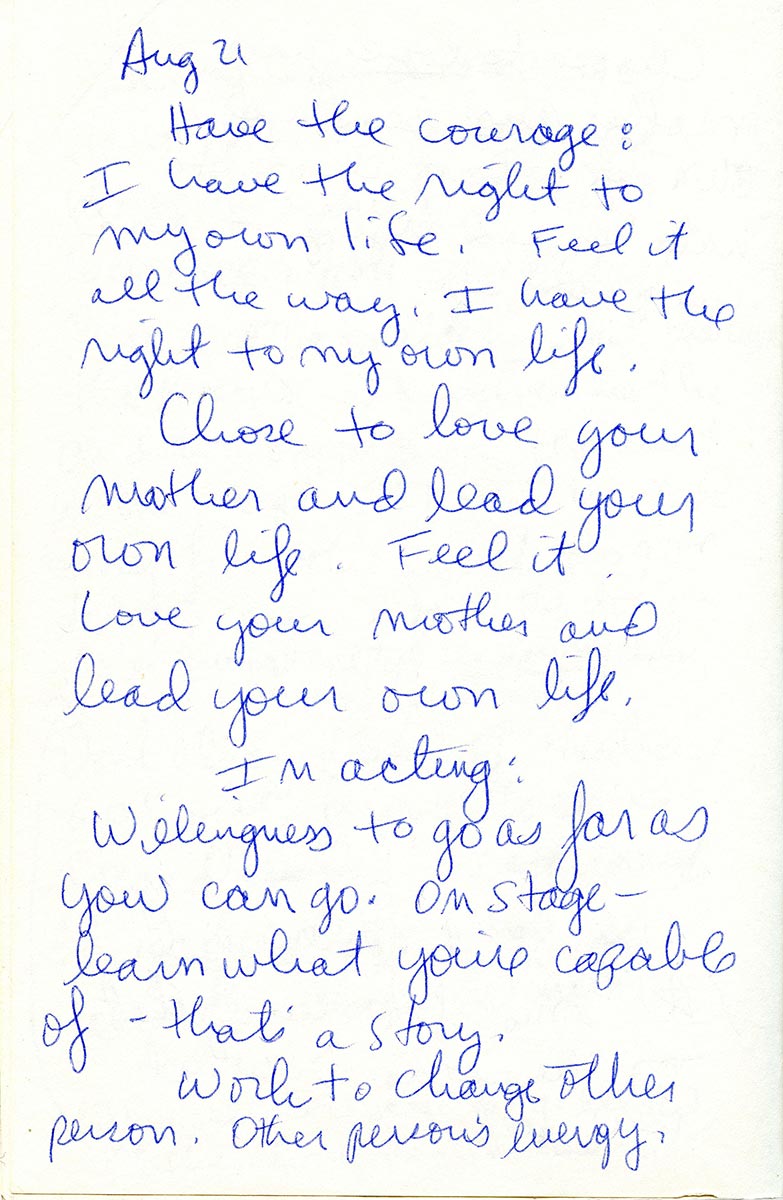 Aug 21
Have the courage:
I have the right to
my own life. Feel it
all the way. I have the
right to my own life.
Chose to love your
mother and lead your
own life. Feel it.
Love your mother and
lead your own life.
In acting:
Willingness to go as far as
you can go. On stage—
learn what you're capable
of – that's a story.
Work to change other
person. Other person's energy.